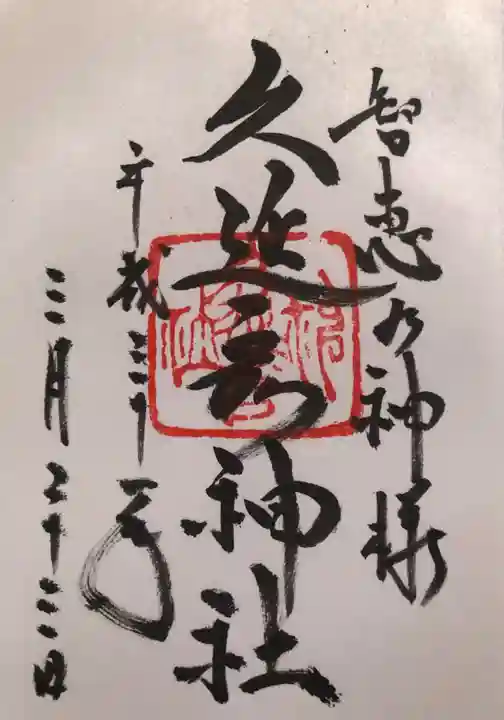 智恵乃神様
久延彦神社
平成三十一年
三月二十三日